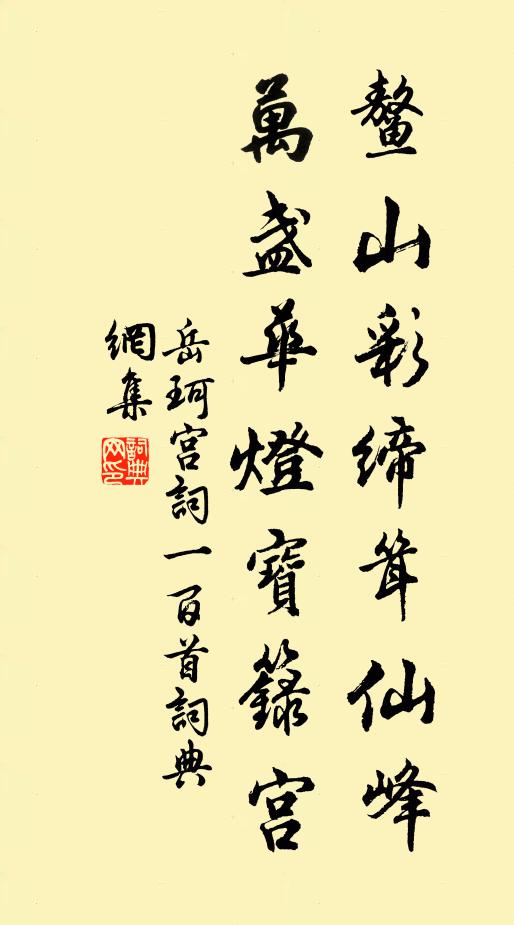 鰲山彩締耸仙峰
萬盞華燈寶籙宫
岳珂宫詞一百首詞典
網集
詞典
网印